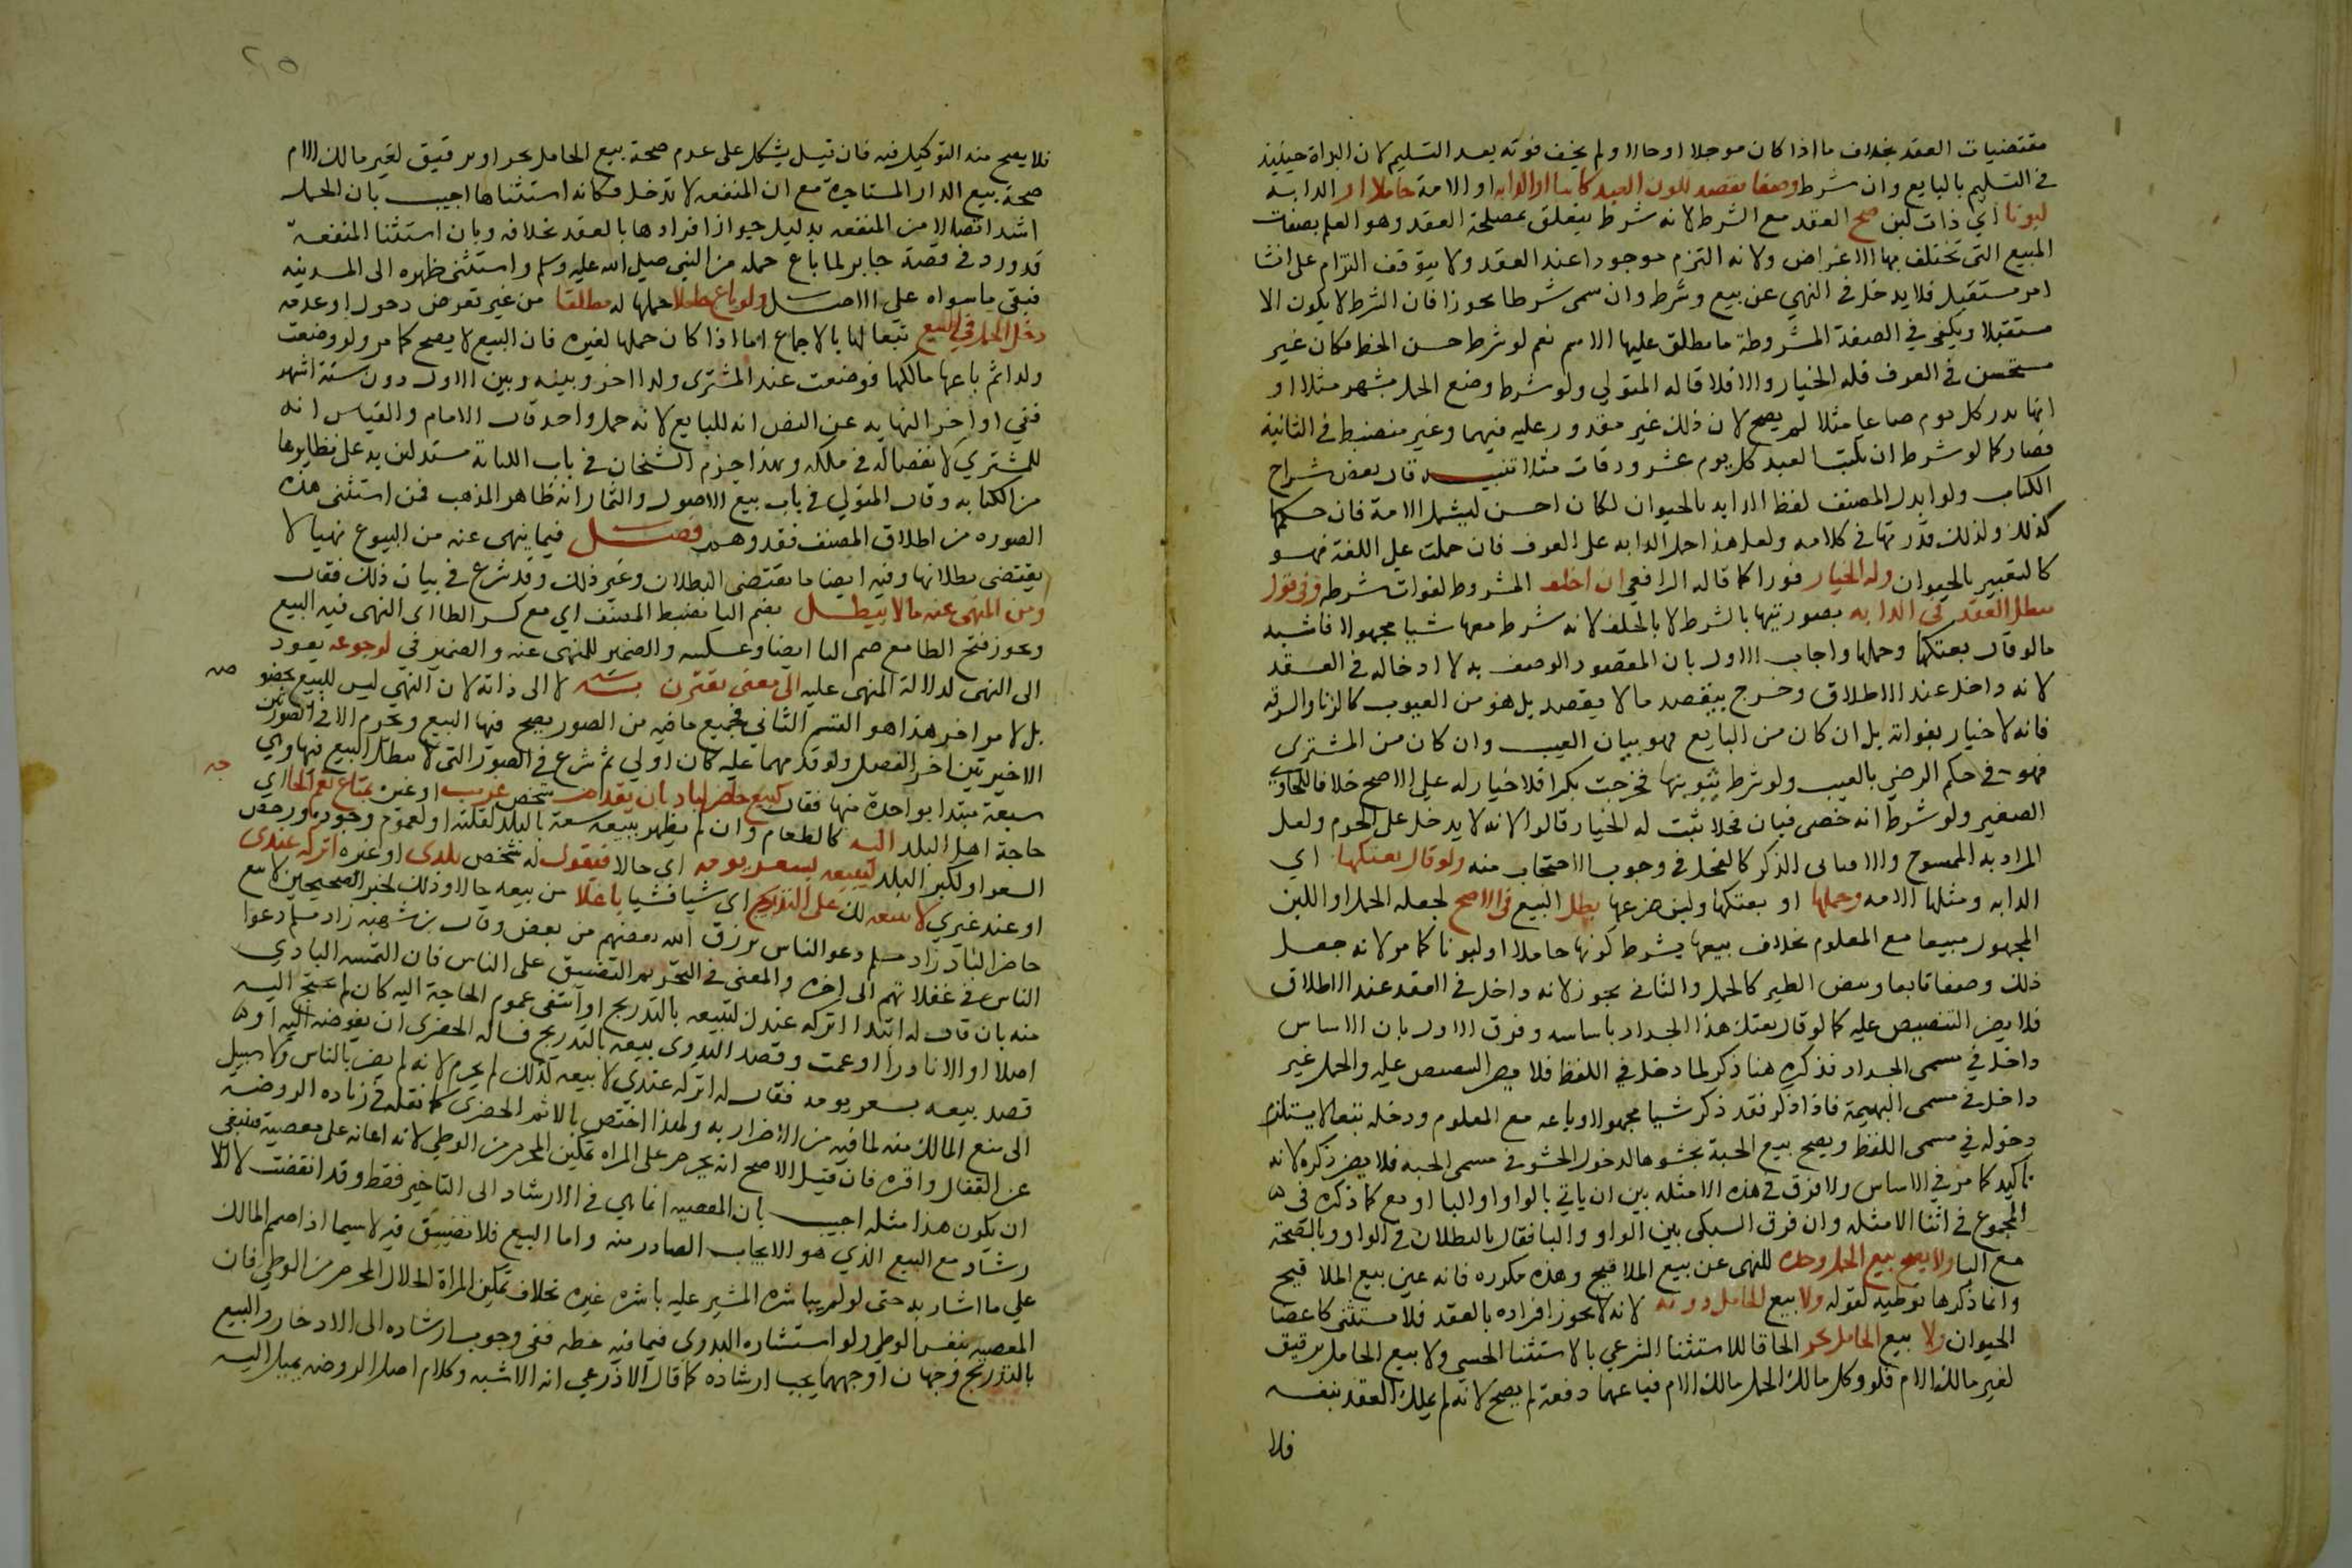 مقتضيات العقد بخلاف ما اذا كان موجلا او حالا ولم يخف فوته بعد التسليم لان البداة حينيذ
في التسليم بالبايع وان شرط وصفا يقصد ككون العبد كاتبا او الدابه او الامة حاملا او الدابه
لبونا اي ذات لبن صح العقد مع الشرط لانه شرط يتعلق بمصلحة العقد وهو العلم بصفات
المبيع التي تختلف بها الاغراض ولانه التزم موجودا عند العقد ولا يتوقف التزام على انشا
امر مستقبل فلا يدخل في النهي عن بيع وشرط وان سمى شرطا تجوزا فان الشرط لا يكون الا
مستقبلا ويكفي في الصفة المشروطة ما يطلق عليها الاسم نعم لو شرط حسن الخط فكان غير
مستحسن في العرف فله الخيار والا فلا قاله المتولي ولو شرط وضع الحمل بشهر مثلا او
انها تدر كل يوم صاعا مثلا لم يصح لان ذلك غير مقدور عليه فيهما وغير منضبط في الثانية
فصار كما لو شرط ان يكتب العبد كل يوم عشر ورقات مثلا تنبيه قال بعض شراح
الكتاب ولو ابدل المصنف لفظ الدابه بالحيوان لكان احسن ليشمل الامة فان حكمها
كذلك ولذلك قدرتها في كلامه ولعل هذا حمل الدابه على العرف فان حملت على اللغة فهو
كالتعبير بالحيوان وله الخيار فورا كما قاله الرافعي ان اخلف المشروط لفوات شرطه وفي قول
يبطل العقد في الدابه بصورتيها بالشرط لا بالخلف لانه شرط معها شيا مجهولا فاشبه
ما لو قال بعتكها وحملها واجاب الاول بان المقصود الوصف به لا ادخاله في العقد
لانه داخل عند الاطلاق وخرج بيقصد ما لا يقصد بل هو من العيوب كالزنا والسرقه
فانه لا خيار بفواته بل ان كان من البايع فهو بيان العيب وان كان من المشترى
فهو في حكم الرضي بالعيب ولو شرط ثيوبتها فخرجت بكرا فلا خيار له على الاصح خلافا للحاوي
الصغير ولو شرط انه خصى فبان فحلا ثبت له الخيار قالوا لانه لا يدخل على الحرم ولعل
المراد به الممسوح والا فباقى الذكر كالفحل في وجوب الاحتجاب منه ولو قال بعتكها اي
الدابه ومثلها الامه وحملها او بعتكها ولبن ضرعها بطل البيع في الاصح لجعله الحمل او اللبن
المجهول مبيعا مع المعلوم بخلاف بيعها بشرط كونها حاملا او لبونا كما مر لانه جعل
ذلك وصفا تابعا وبيض الطير كالحمل والثاني يجوز لانه داخل في العقد عند الاطلاق
فلا يضر التنصيص عليه كما لو قال بعتك هذا الجدار باساسه وفرق الاول بان الاساس
داخل في مسمى الجدار فذكره هنا ذكر لما دخل في اللفظ فلا يضر التنصيص عليه والحمل غير
داخل في مسمى البهيمة فاذا ذكر فقد ذكر شيا مجهولا وباعه مع المعلوم ودخله تبعا لا يستلزم
دخوله في مسمى اللفظ ويصح بيع الجبة بحشوها لدخول الحشو في مسمى الجبه فلا يضر ذكره لانه
تاكيد كما مر في الاساس ولا فرق في هذه الامثله بين ان ياتي بالواو او البا او مع كما ذكره في
المجموع في اثنا الامثله وان فرق السبكى بين الواو والبا فقال بالبطلان في الواو وبالصحة
مع البا ولا يصح بيع الحمل وحده للنهى عن بيع الملاقيح وهذه مكرره فانه عين بيع الملاقيح
وانما ذكرها توطيه لقوله ولا بيع الحامل دونه لانه لا يجوز افراده بالعقد فلا يستثنى كاعضا
الحيوان ولا بيع الحامل بحر الحاقا للاستثنا الشرعي بالاستثنا الحسي ولا بيع الحامل برقيق
لغير مالك الام فلو وكل مالك الحمل مالك الام فباعهما دفعة لم يصح لانه لم يملك العقد بنفسه
فلا
٢٥
فلا يصح منه التوكيل فيه فان قيل يشكل على عدم صحة بيع الحامل بحر او برقيق لغير مالك الام
صحة بيع الدار المستاجرة مع ان المنفعه لا تدخل فكانه استثناها اجيب بان الحمل
اشد اتصالا من المنفعه بدليل جواز افرادها بالعقد بخلافه وبان استثنا المنفعة
قد ورد في قصة جابر لما باع جمله من النبي صلى الله عليه وسلم واستثنى ظهره الى المدينه
فبقي ما سواه على الاصل ولو باع حاملا حملها له مطلقا من غير تعرض دخول او عدمه
دخل الحمل في البيع تبعا لها بالاجماع اما اذا كان حملها لغيره فان البيع لا يصح كما مر ولو وضعت
ولدا ثم باعها مالكها فوضعت عند المشترى ولدا اخر وبينه وبين الاول دون ستة اشهر
ففي اواخر النهايه عن النص انه للبايع لانه حمل واحد قال الامام والقياس انه
للمشتري لانفصاله في ملكه وبهذا جزم الشيخان في باب الكتابة مستدلين به على نظايرها
من الكتابه وقال المتولي في باب بيع الاصول والثمار انه ظاهر المذهب فمن استثنى هذه
الصوره من اطلاق المصنف فقد وهم فصل فيما ينهى عنه من البيوع نهيا لا
يقتضى بطلانها وفيه ايضا ما يقتضى البطلان وغير ذلك وقد شرع في بيان ذلك فقال
ومن المنهى عنه ما لا يبطل بضم اليا بضبط المصنف اي مع كسر الطا اى النهى فيه البيع
ويجوز فتح الطا مع ضم اليا ايضا وعكسه والضمير للمنهى عنه والضمير في لرجوعه يعود
الى النهى لدلالة المنهى عليه الى معنى يقترن به لا الى ذاته لان النهي ليس للبيع بخصو
صه
بل لامر اخر هذا هو القسم الثاني فجميع ما فيه من الصور يصح فيها البيع ويحرم الا في الصورتين
الاخيرتين اخر الفصل ولو قدمهما عليه كان اولي ثم شرع في الصور التى لا يبطل البيع فيها وهي
سبعة مبتدا بواحدة منها فقال كبيع حاضر لباد بان يقدم شخص غريب او غيره بمتاع تعم الحا اي
جه
حاجة اهل البلد اليه كالطعام وان لم يظهر ببيعه سعة بالبلد لقلته او لعموم وجوده ورخص
السعر او لكبر البلد ليبيعه بسعر يومه اي حالا فيقول له شخص بلدى او غيره اتركه عندى
او عند غيري لابيعه لك على التدريج اى شيا فشيا باغلا من بيعه حالا وذلك لخبر الصحيحين لا يبع
حاضر لباد زاد مسلم دعو الناس يرزق الله بعضهم من بعض وقال بن شهبه زاد مسلم دعوا
الناس في غفلاتهم الى اخره والمعنى في التحريم التضييق على الناس فان التمسه البادي
منه بان قال له ابتدا اتركه عندك لتبيعه بالتدريج او انتفى عموم الحاجة اليه كان لم يحتج اليه
اصلا او الا نادرا او عمت وقصد البدوى بيعه بالتدريج فساله الحضرى ان يفوضه اليه او
قصد بيعه بسعر يومه فقال له اتركه عندي لابيعه كذلك لم يحرم لانه لم يضر بالناس ولا سبيل
الى منع المالك منه لما فيه من الاضرار به ولهذا اختص بالاثم الحضرى كما نقله في زياده الروضة
عن القفال واقره فان قيل الاصح انه يحرم على المراه تمكين المحرم من الوطي لانه اعانه على معصية فينبغى
ان يكون هذا مثله اجيب بان المعصيه انما هي في الارشاد الى التاخير فقط وقد انقضت لا الا
رشاد مع البيع الذي هو الايجاب الصادر منه واما البيع فلا تضييق فيه لا سيما اذا صمم المالك
على ما اشار به حتى لو لم يباشره المشير عليه باشره غيره بخلاف تمكين المراة الحلال المحرم من الوطي فان
المعصيه بنفس الوطي ولو استشاره البدوى فيما فيه حظه ففى وجوب ارشاده الى الادخار والبيع
بالتدريج وجهان اوجههما يجب ارشاده كما قال الاذرعي انه الاشبه وكلام اصل الروضه يميل اليه